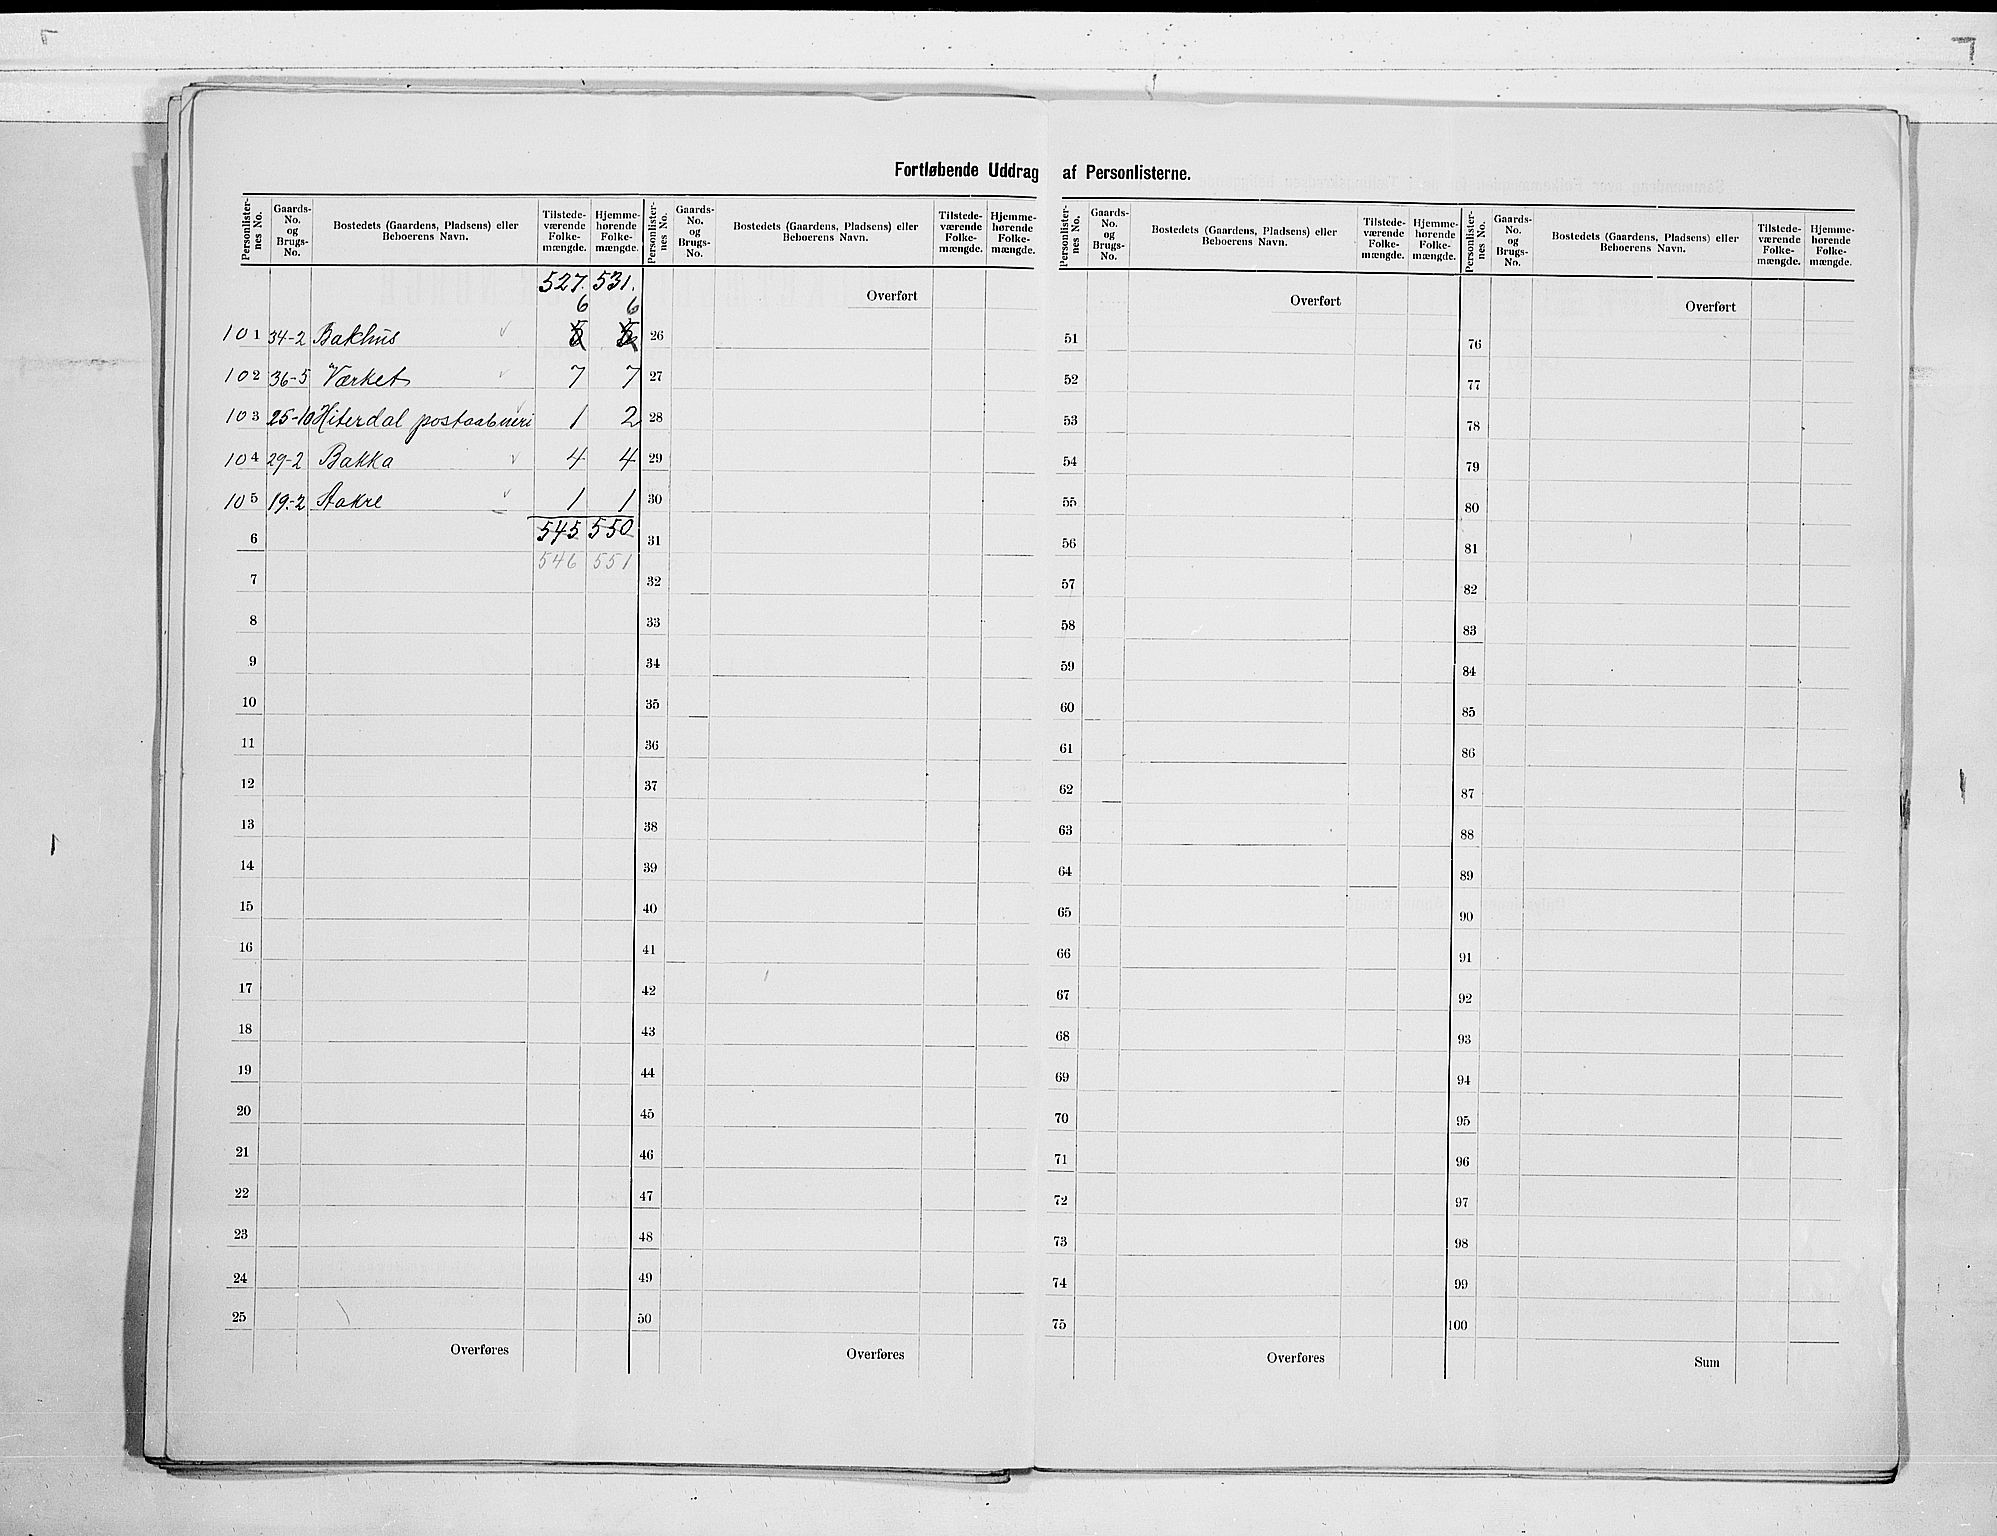 Fortløbende Uddrag af Personlisterne.
Personlister-nes No. | Gaards-No. og Brugs-No. | Bostedets (Gaardens, Pladsens) eller Beboerens Navn. | Tilstede-værende Folke-mængde. | Hjemme-hørende Folke-mængde.
527. 531.
6 6
101 34-2 Bakhus
102 36-5 Værket 7 7
103 25-10 Hiterdal postaabneri 1 2
104 29-2 Bakka 4 4
105 19-2 Aakre 1 1
545 550
6
546 551
7
8
9
10
11
12
13
14
15
16
17
18
19
20
21
22
23
24
25
Overføres
Personlister-nes No. | Gaards-No. og Brugs-No. | Bostedets (Gaardens, Pladsens) eller Beboerens Navn. | Tilstede-værende Folke-mængde. | Hjemme-hørende Folke-mængde.
Overført
26
27
28
29
30
31
32
33
34
35
36
37
38
39
40
41
42
43
44
45
46
47
48
49
50
Overføres
Personlister-nes No. | Gaards-No. og Brugs-No. | Bostedets (Gaardens, Pladsens) eller Beboerens Navn. | Tilstede-værende Folke-mængde. | Hjemme-hørende Folke-mængde.
Overført
51
52
53
54
55
56
57
58
59
60
61
62
63
64
65
66
67
68
69
70
71
72
73
74
75
Overføres
Personlister-nes No. | Gaards-No. og Brugs-No. | Bostedets (Gaardens, Pladsens) eller Beboerens Navn. | Tilstede-værende Folke-mængde. | Hjemme-hørende Folke-mængde.
Overført
76
77
78
79
80
81
82
83
84
85
86
87
88
89
90
91
92
93
94
95
96
97
98
99
100
Sum